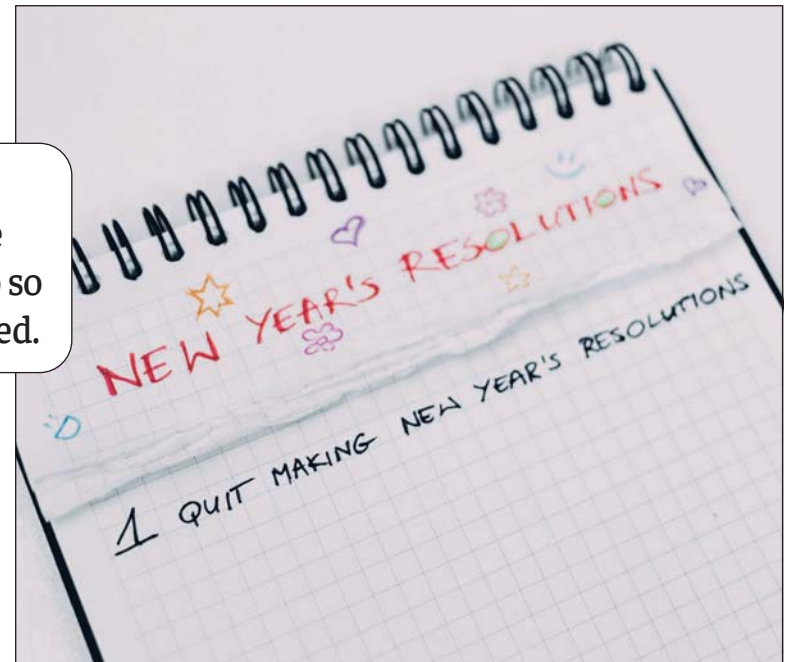 e
so
ed.
NEW YEAR'S RESOLUTIONS
1 QUIT MAKING NEW YEAR'S RESOLUTIONS